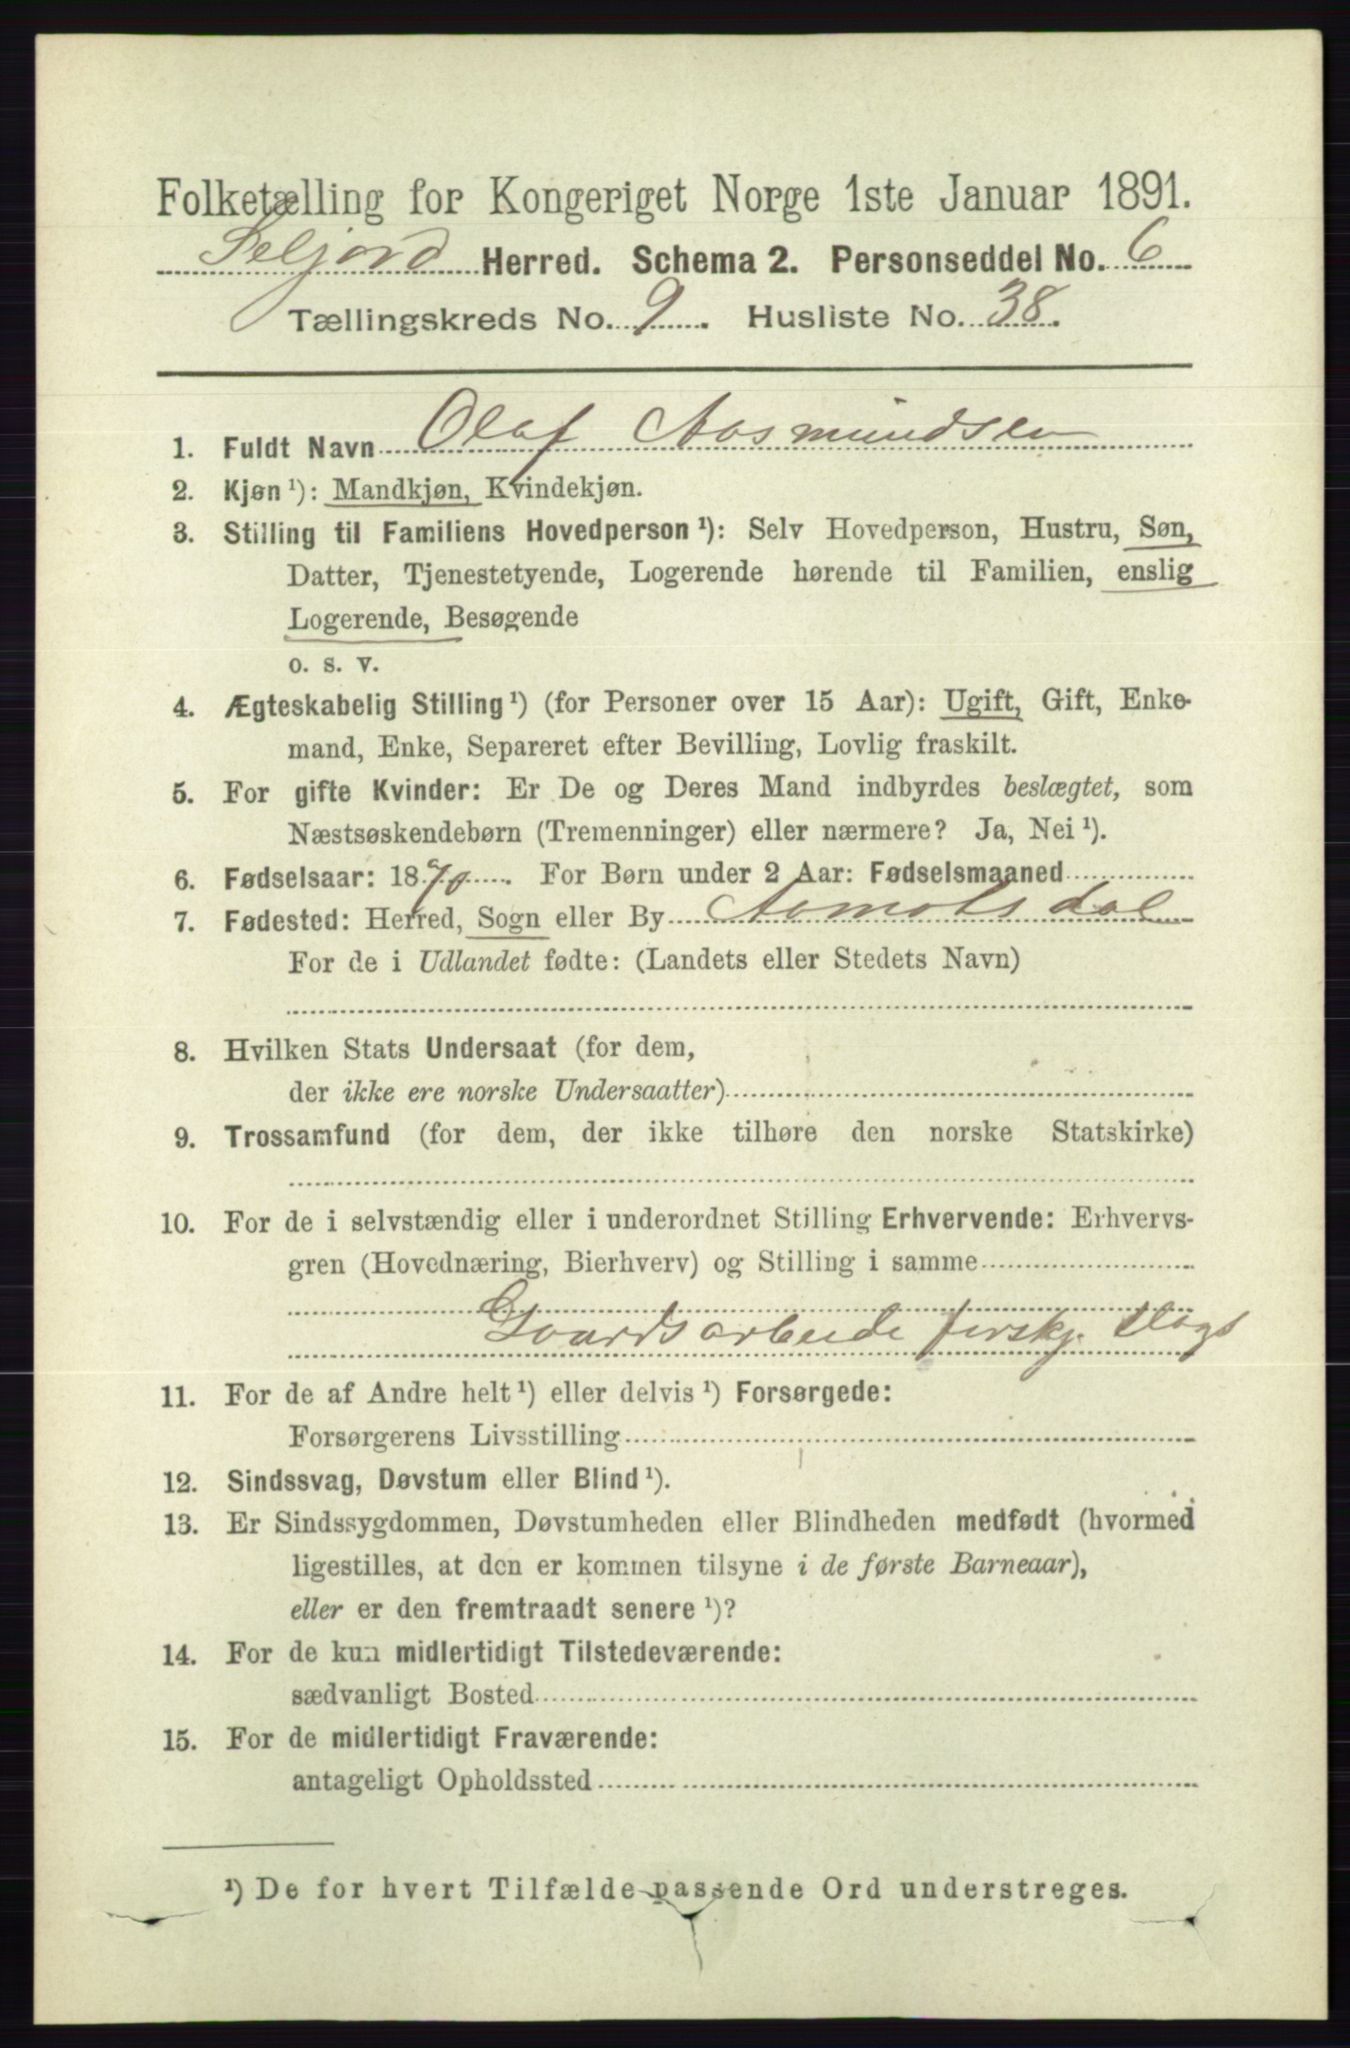 Folketælling for Kongeriget Norge 1ste Januar 1891.
Seljord Herred. Schema 2. Personseddel No. 6
Tællingskreds No. 9. Husliste No. 38.
1. Fuldt Navn Olaf Aasmundsen
2. Kjøn ¹): Mandkjøn, Kvindekjøn.
3. Stilling til Familiens Hovedperson ¹): Selv Hovedperson, Hustru, Søn,
Datter, Tjenestetyende, Logerende hørende til Familien, enslig
Logerende, Besøgende
o. s. v.
4. Ægteskabelig Stilling ¹) (for Personer over 15 Aar): Ugift, Gift, Enke-
mand, Enke, Separeret efter Bevilling, Lovlig fraskilt.
5. For gifte Kvinder: Er De og Deres Mand indbyrdes beslægtet, som
Næstsøskendebørn (Tremenninger) eller nærmere? Ja, Nei ¹).
6. Fødselsaar: 1870. For Børn under 2 Aar: Fødselsmaaned
7. Fødested: Herred, Sogn eller By Aamotsdal
For de i Udlandet fødte: (Landets eller Stedets Navn)
8. Hvilken Stats Undersaat (for dem,
der ikke ere norske Undersaatter)
9. Trossamfund (for dem, der ikke tilhøre den norske Statskirke)
10. For de i selvstændig eller i underordnet Stilling Erhvervende: Erhvervs-
gren (Hovednæring, Bierhverv) og Stilling i samme
Gaardsarbeide forskj. Slags
11. For de af Andre helt ¹) eller delvis ¹) Forsørgede:
Forsørgerens Livsstilling
12. Sindssvag, Døvstum eller Blind ¹).
13. Er Sindssygdommen, Døvstumheden eller Blindheden medfødt (hvormed
ligestilles, at den er kommen tilsyne i de første Barneaar),
eller er den fremtraadt senere ¹)?
14. For de kun midlertidigt Tilstedeværende:
sædvanligt Bosted
15. For de midlertidigt Fraværende:
antageligt Opholdssted
¹) De for hvert Tilfælde passende Ord understreges.